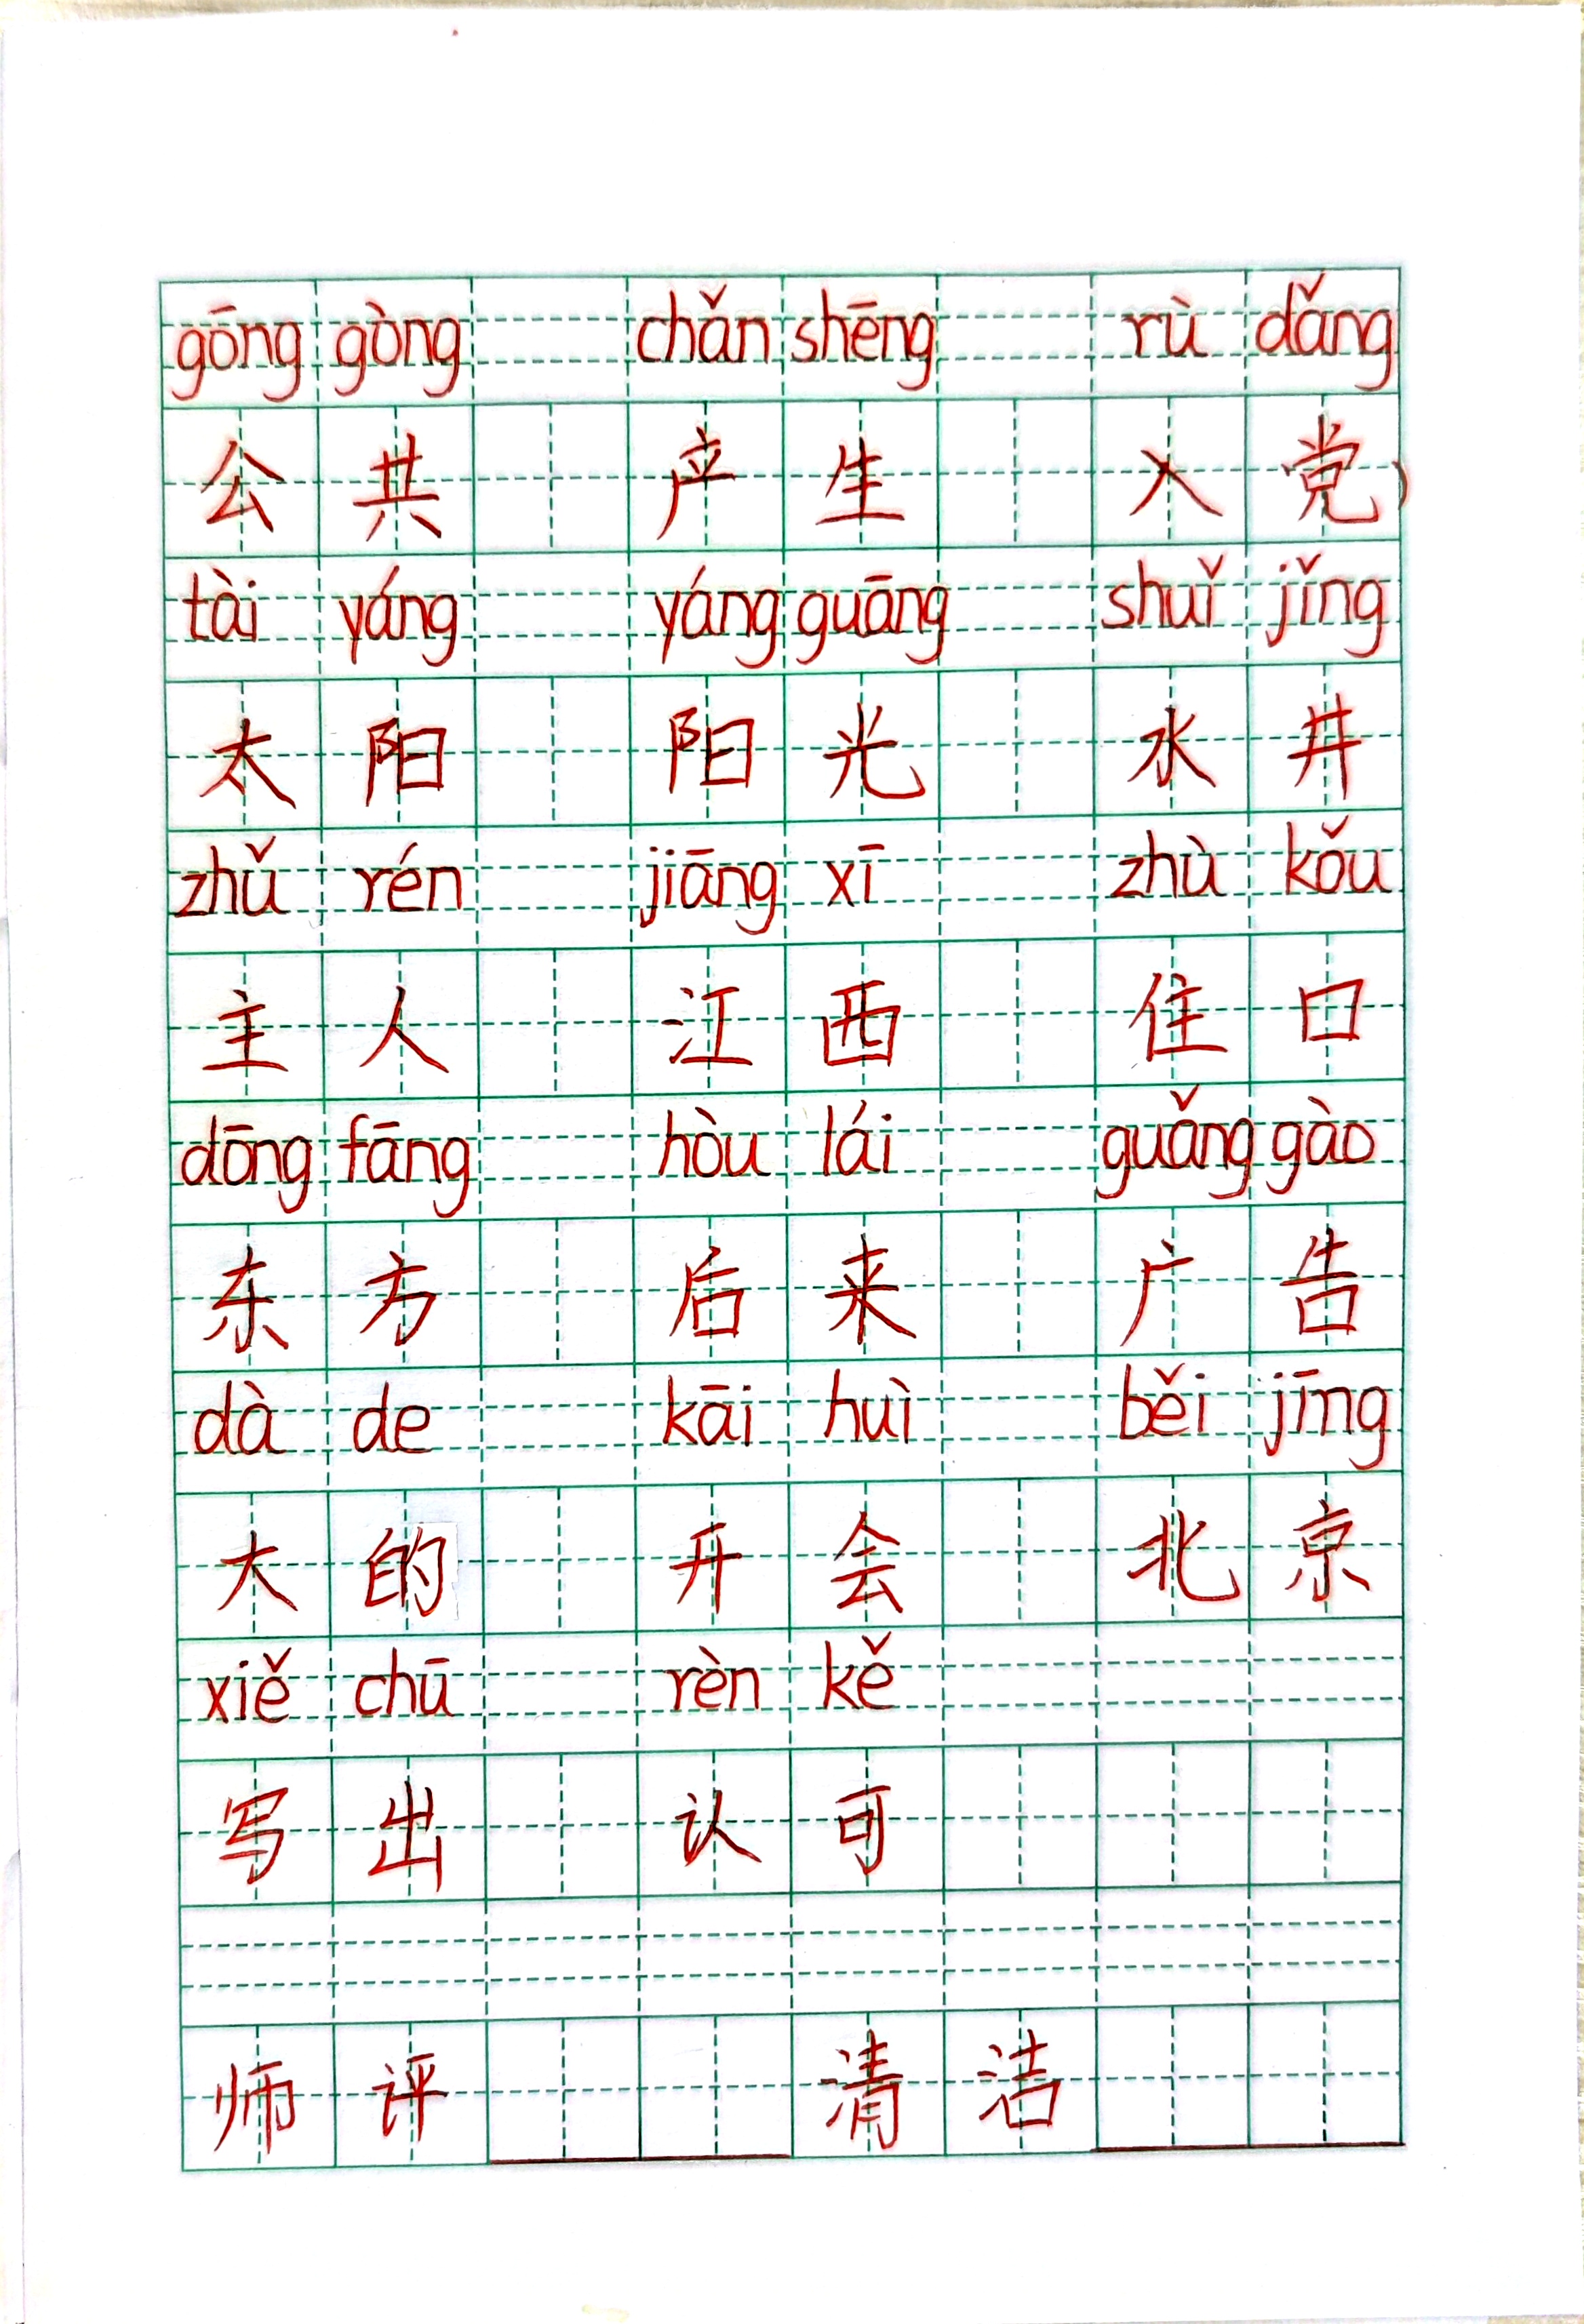 gōng gòng chǎn shēng rù dǎng
公共 产生 入党
tài yáng yáng guāng shuǐ jǐng
太阳 阳光 水井
zhǔ rén jiāng xī zhù kǒu
主人 江西 住口
dōng fāng hòu lái guǎng gào
东方 后来 广告
dà de kāi huì běi jīng
大的 开会 北京
xiě chū rèn kě
写出 认可
师评 清洁